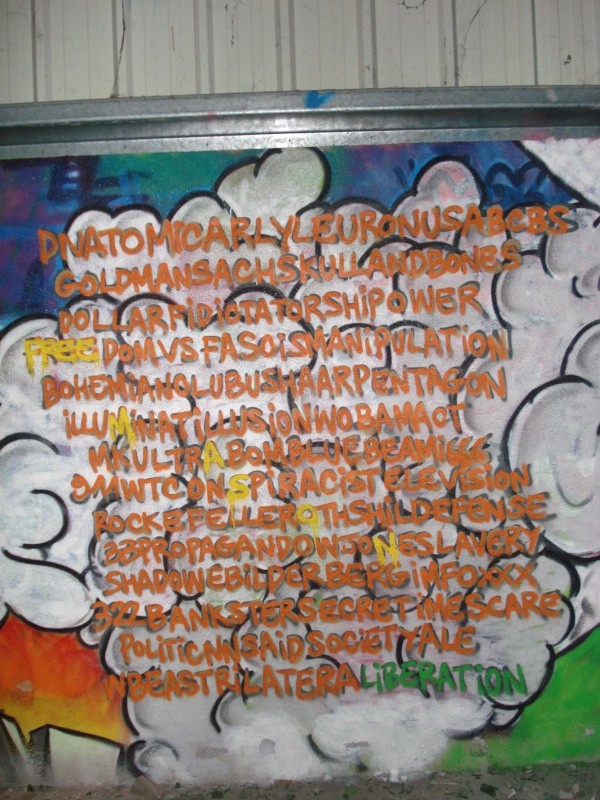 DNATOMICARLYLEURONUSABCBS
GOLDMANSACHSKULLANDBONES
DOLLARFIDICTATORSHIPOWER
FREEDOMVSFASCISMANIPULATION
BOHEMIANCLUBUSHAARPENTAGON
iLLUMINATILLUSIONWOBAMACT
MKULTRABOMBLUEBEAMI666
911WTCONSPIRACISTELEVISION
ROCKEFELLER9THSHILDEFENSE
33PROPAGANDOWJONESLAVERY
SHADOWEBILDERBERGIMFOXXX
322BANKSTERSECRETIMESCARE
POLITICNNSAIDSOCIETYALE
NBEASTRILATERALIBERATION